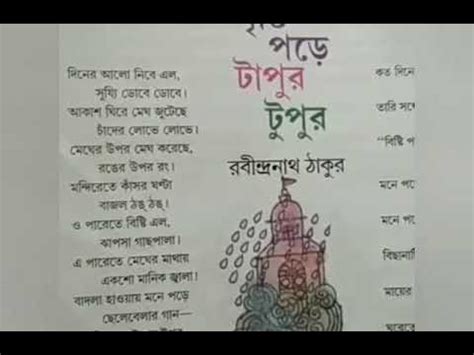 পড়ে
টাপুর
টুপুর
রবীন্দ্রনাথ ঠাকুর
দিনের আলো নিবে এল,
সুয্যি ডোবে ডোবে।
আকাশ ঘিরে মেঘ জুটেছে
চাঁদের লোভে লোভে।
মেঘের উপর মেঘ করেছে,
রঙের উপর রং।
মন্দিরেতে কাঁসর ঘণ্টা
বাজল ঠঙ্ ঠঙ্।
ও পারেতে বিষ্টি এল,
ঝাপসা গাছপালা।
এ পারেতে মেঘের মাথায়
একশো মানিক জ্বালা।
বাদলা হাওয়ায় মনে পড়ে
ছেলেবেলার গান—
কত দিনে
তারি সঙ্গে
"বিষ্টি প
মনে পড়ে
মনে পড়ে
বিছানা
মায়ের
ঘরেতে